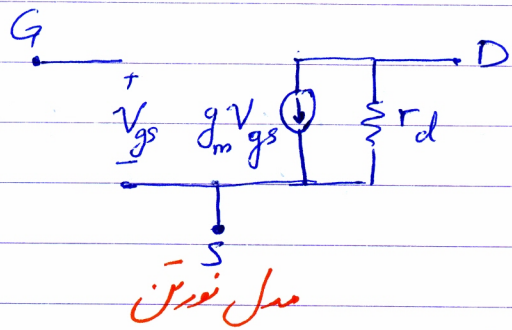 G
D
+
V_gs
g_m V_gs
r_d
-
S
مدل نورتن